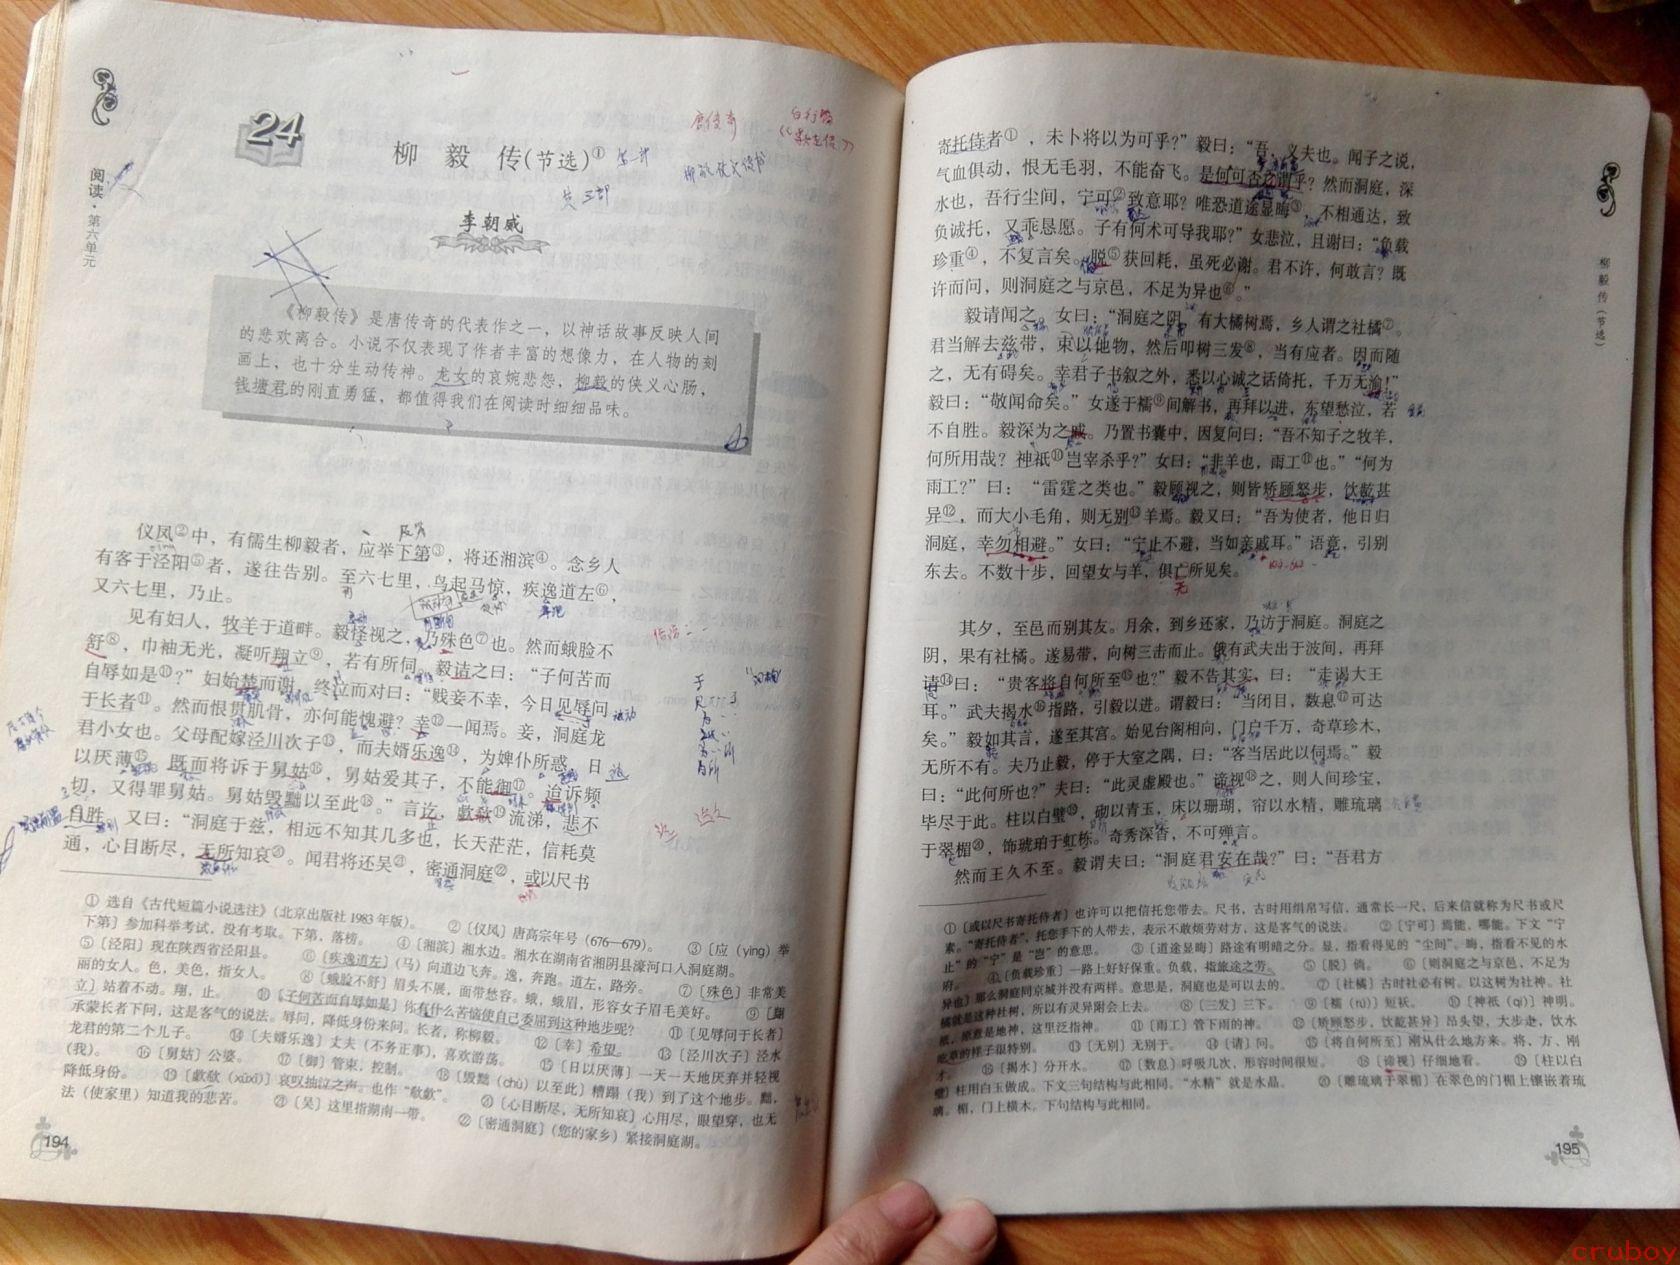 阅读·第六单元
24
柳 毅 传(节选)①
李朝威
《柳毅传》是唐传奇的代表作之一，以神话故事反映人间
的悲欢离合。小说不仅表现了作者丰富的想像力，在人物的刻
画上，也十分生动传神。龙女的哀婉悲怨，柳毅的侠义心肠，
钱塘君的刚直勇猛，都值得我们在阅读时细细品味。
仪凤②中，有儒生柳毅者，应举下第③，将还湘滨④。念乡人
有客于泾阳⑤者，遂往告别。至六七里，鸟起马惊，疾逸道左⑥，
又六七里，乃止。
见有妇人，牧羊于道畔。毅怪视之，乃殊色⑦也。然而蛾脸不
舒⑧，巾袖无光，凝听翔立⑨，若有所伺。毅诘之曰：“子何苦而
自辱如是⑩？”妇始楚而谢，终泣而对曰：“贱妾不幸，今日见辱问
于长者⑪。然而恨贯肌骨，亦何能愧避？幸⑫一闻焉。妾，洞庭龙
君小女也。父母配嫁泾川次子⑬，而夫婿乐逸⑭，为婢仆所惑，日
以厌薄⑮。既而将诉于舅姑⑯，舅姑爱其子，不能御⑰。迨诉频
切，又得罪舅姑。舅姑毁黜以至此⑱。”言讫，歔欷⑲流涕，悲不
自胜。又曰：“洞庭于兹，相远不知其几多也，长天茫茫，信耗莫
通，心目断尽，无所知哀⑳。闻君将还吴㉑，密通洞庭㉒，或以尺书
① 选自《古代短篇小说选注》(北京出版社1983年版)。 ②〔仪凤〕唐高宗年号(676—679)。 ③〔应（yìng）举
下第〕参加科举考试，没有考取。下第，落榜。 ④〔湘滨〕湘水边。湘水在湖南省湘阴县濠河口入洞庭湖。
⑤〔泾阳〕现在陕西省泾阳县。 ⑥〔疾逸道左〕(马)向道边飞奔。逸，奔跑。道左，路旁。 ⑦〔殊色〕非常美
丽的女人。色，美色，指女人。 ⑧〔蛾脸不舒〕眉头不展，面带愁容。蛾，蛾眉，形容女子眉毛美好。 ⑨〔翔
立〕站着不动。翔，止。 ⑩〔子何苦而自辱如是〕你有什么苦恼使自己委屈到这种地步呢？ ⑪〔见辱问于长者〕
承蒙长者下问，这是客气的说法。辱问，降低身份来问。长者，称柳毅。 ⑫〔幸〕希望。 ⑬〔泾川次子〕泾水
龙君的第二个儿子。 ⑭〔夫婿乐逸〕丈夫(不务正事)，喜欢游荡。 ⑮〔日以厌薄〕一天一天地厌弃并轻视
(我)。 ⑯〔舅姑〕公婆。 ⑰〔御〕管束，控制。 ⑱〔毁黜（chù）以至此〕糟蹋(我)到了这个地步。黜，
降低身份。 ⑲〔歔欷（xūxī）〕哀叹抽泣之声。也作“歔欷”。 ⑳〔心目断尽，无所知哀〕心用尽，眼望穿，也无
法(使家里)知道我的悲苦。 ㉑〔吴〕这里指湖南一带。 ㉒〔密通洞庭〕(您的家乡)紧接洞庭湖。
194
柳毅传(节选)
寄托侍者①，未卜将以为可乎？”毅曰：“吾，义夫也。闻子之说，
气血俱动，恨无毛羽，不能奋飞。是何可否之谓乎？然而洞庭，深
水也，吾行尘间，宁可②致意耶？唯恐道途显晦③，不相通达，致
负诚托，又乖恳愿。子有何术可导我耶？”女悲泣，且谢曰：“负载
珍重④，不复言矣。脱⑤获回耗，虽死必谢。君不许，何敢言？既
许而问，则洞庭之与京邑，不足为异也⑥。”
毅请闻之。女曰：“洞庭之阴，有大橘树焉，乡人谓之社橘⑦。
君当解去兹带，束以他物，然后叩树三发⑧，当有应者。因而随
之，无有碍矣。幸君子书叙之外，悉以心诚之话倚托，千万无渝！”
毅曰：“敬闻命矣。”女遂于襦⑨间解书，再拜以进，东望愁泣，若
不自胜。毅深为之戚。乃置书囊中，因复问曰：“吾不知子之牧羊，
何所用哉？神祇⑩岂宰杀乎？”女曰：“非羊也，雨工⑪也。”“何为
雨工？”曰：“雷霆之类也。”毅顾视之，则皆矫顾怒步，饮龁甚
异⑫，而大小毛角，则无别⑬羊焉。毅又曰：“吾为使者，他日归
洞庭，幸勿相避。”女曰：“宁止不避，当如亲戚耳。”语竟，引别
东去。不数十步，回望女与羊，俱亡所见矣。
其夕，至邑而别其友。月余，到乡还家，乃访于洞庭。洞庭之
阴，果有社橘。遂易带，向树三击而止。俄有武夫出于波间，再拜
请⑭曰：“贵客将自何所至⑮也？”毅不告其实，曰：“走谒大王
耳。”武夫揭水⑯指路，引毅以进。谓毅曰：“当闭目，数息⑰可达
矣。”毅如其言，遂至其宫。始见台阁相向，门户千万，奇草珍木，
无所不有。夫乃止毅，停于大室之隅，曰：“客当居此以伺焉。”毅
曰：“此何所也？”夫曰：“此灵虚殿也。”谛视⑱之，则人间珍宝，
毕尽于此。柱以白璧⑲，砌以青玉，床以珊瑚，帘以水精，雕琉璃
于翠楣⑳，饰琥珀于虹栋。奇秀深杳，不可殚言。
然而王久不至。毅谓夫曰：“洞庭君安在哉？”曰：“吾君方
①〔或以尺书寄托侍者〕也许可以把信托您带去。尺书，古时用绢帛写信，通常长一尺，后来信就称为尺书或尺
素。“寄托侍者”，托您手下的人带去，表示不敢烦劳对方，这是客气的说法。 ②〔宁可〕焉能，哪能。下文“宁
止”的“宁”是“岂”的意思。 ③〔道途显晦〕路途有明暗之分。显，指看得见的“尘间”。晦，指看不见的水
府。 ④〔负载珍重〕一路上好好保重。负载，指旅途之劳。 ⑤〔脱〕倘。 ⑥〔则洞庭之与京邑，不足为
异也〕那么洞庭同京城并没有两样。意思是，洞庭也是可以去的。 ⑦〔社橘〕古时社必有树。以这树为社神。社
橘就是这种社树，所以有灵异附会上去。 ⑧〔三发〕三下。 ⑨〔襦（rú）〕短袄。 ⑩〔神祇（qí）〕神明。
祇，原意是地神，这里泛指神。 ⑪〔雨工〕管下雨的神。 ⑫〔矫顾怒步，饮龁甚异〕昂头望，大步走，饮水
吃草的样子很特别。 ⑬〔无别〕无别于。 ⑭〔请〕问。 ⑮〔将自何所至〕刚从什么地方来。将，方、刚
才。 ⑯〔揭水〕分开水。 ⑰〔数息〕呼吸几次，形容时间很短。 ⑱〔谛视〕仔细地看。 ⑲〔柱以白
璧〕柱用白玉做成。下文三句结构与此相同。“水精”就是水晶。 ⑳〔雕琉璃于翠楣〕在翠色的门楣上镶嵌着琉
璃。楣，门上横木，下句结构与此相同。
195
cruboy